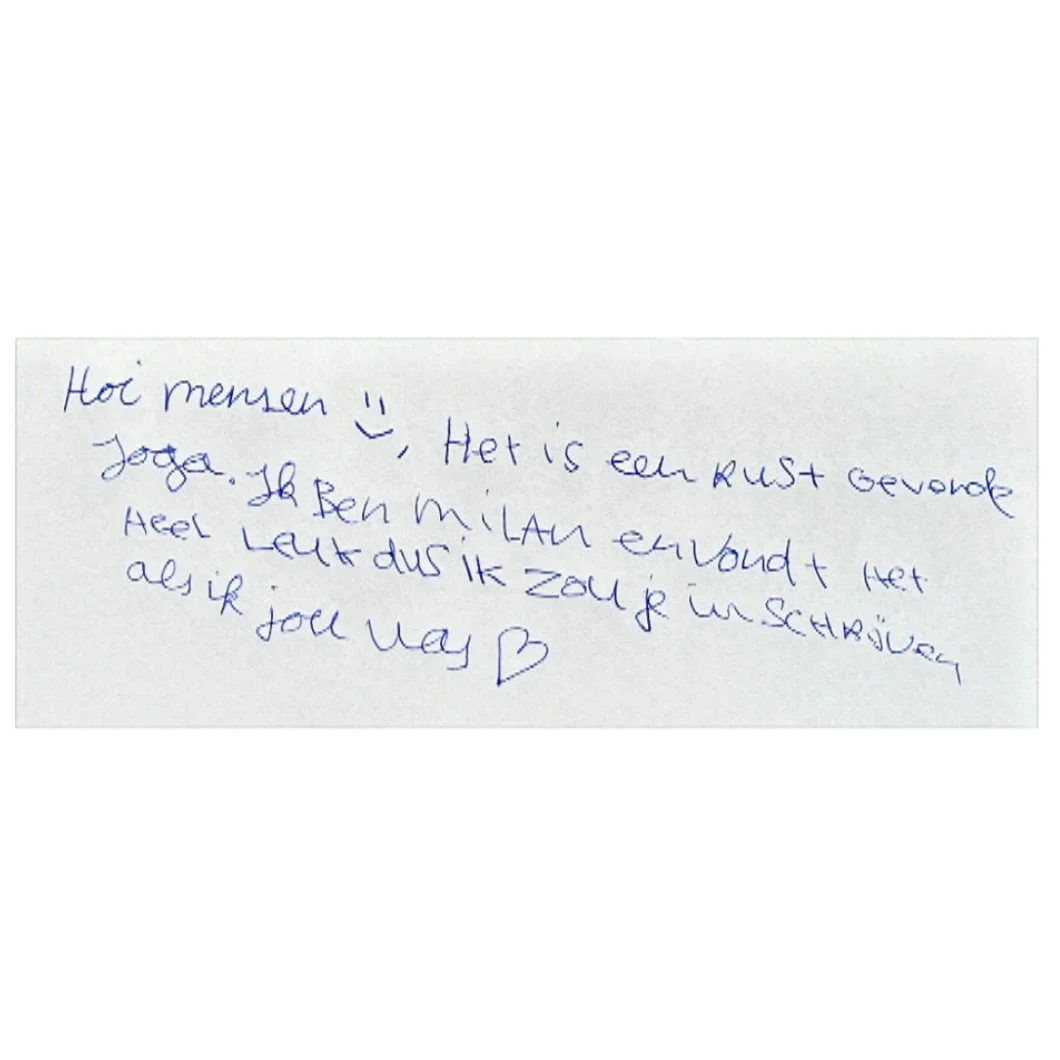 Hoi mensen :), Het is een Rust Gevende
Joga. Ik Ben Milan en vondt Het
Heel Leuk dus ik zou je in SCHRijven
als ik jou was ♡